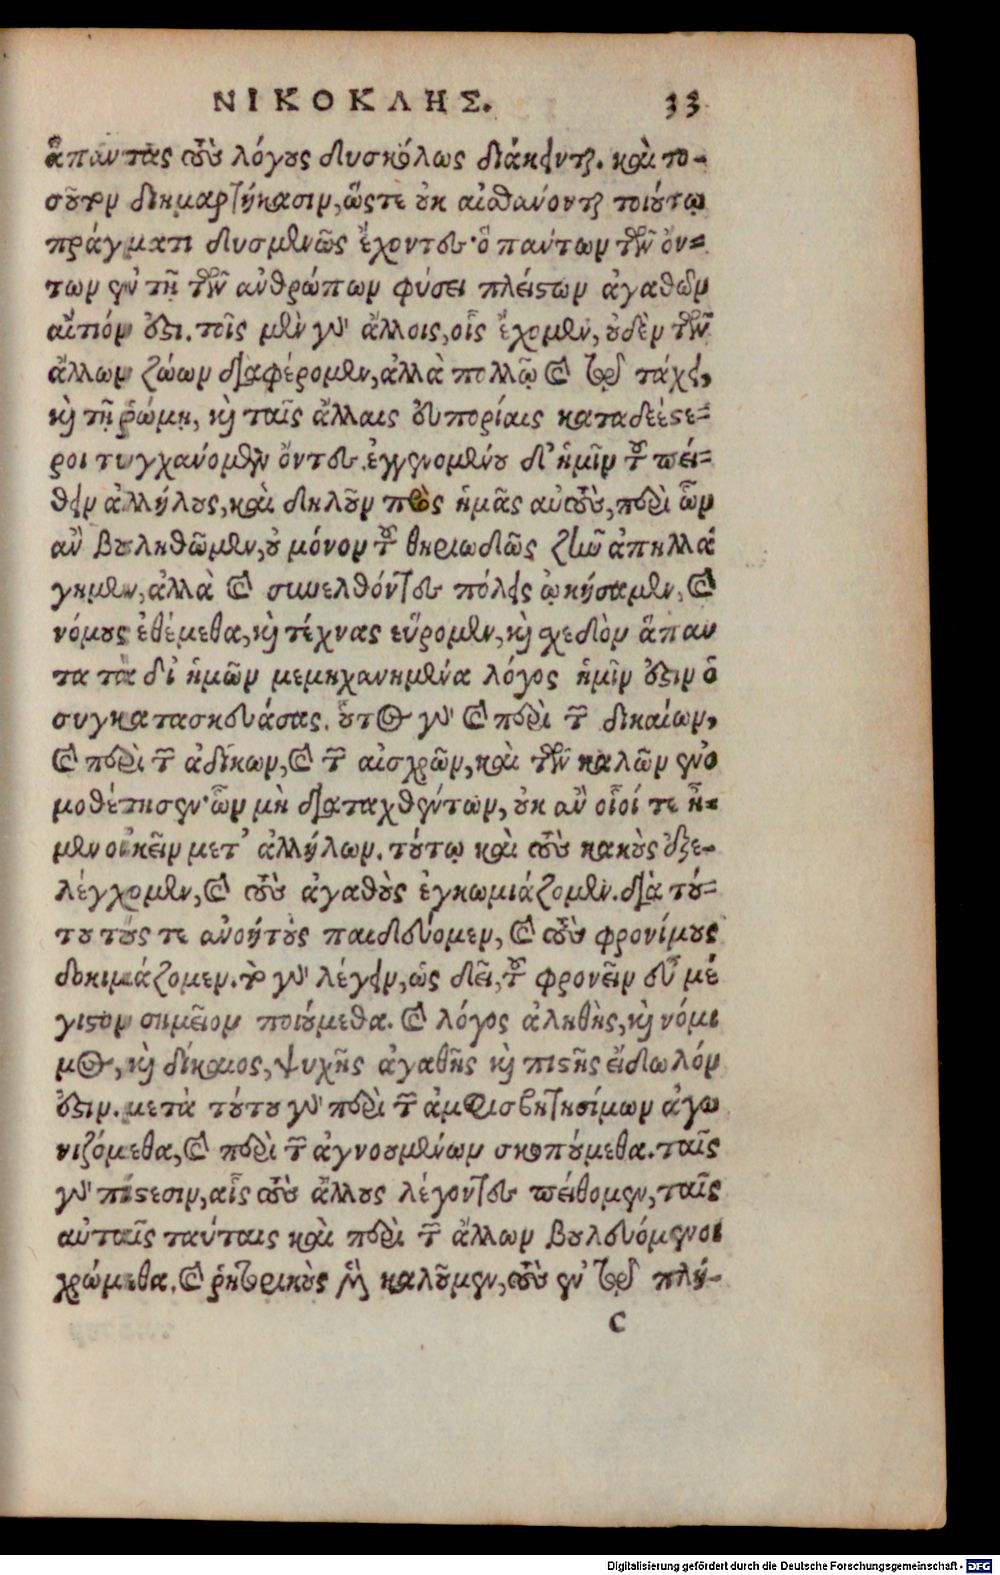 ΝΙΚΟΚΛΗΣ. 33
ἅπαντας τοὺς λόγους δυσκόλως διάκεινται. καὶ το-
σοῦτον διημαρτήκασιν, ὥςτε οὐκ αἰσθάνονται τοιούτῳ
πράγματι δυσμενῶς ἔχοντες· ὃ πάντων τῶν ὄν-
των ἐν τῇ τῶν ἀνθρώπων φύσει πλείστων ἀγαθῶν
αἴτιόν ἐστι. τοῖς μὲν γὰρ ἄλλοις, οἷς ἔχομεν, οὐδὲν τῶν
ἄλλων ζώων διαφέρομεν, ἀλλὰ πολλῷ καὶ τῷ τάχει,
καὶ τῇ ῥώμῃ, καὶ ταῖς ἄλλαις εὐπορίαις καταδεέστε-
ροι τυγχάνομεν ὄντες. ἐγγενομένου δ' ἡμῖν τοῦ πεί-
θειν ἀλλήλους, καὶ δηλοῦν πρὸς ἡμᾶς αὐτοὺς, περὶ ὧν
ἂν βουληθῶμεν, οὐ μόνον τοῦ θηριωδῶς ζῆν ἀπηλλά
γημεν, ἀλλὰ καὶ συνελθόντες πόλεις ᾠκήσαμεν, καὶ
νόμους ἐθέμεθα, καὶ τέχνας εὕρομεν, καὶ σχεδὸν ἅπαν
τα τὰ δι' ἡμῶν μεμηχανημένα λόγος ἡμῖν ἐστιν ὁ
συγκατασκευάσας. οὗτος γὰρ καὶ περὶ τῶν δικαίων,
καὶ περὶ τῶν ἀδίκων, καὶ τῶν αἰσχρῶν, καὶ τῶν καλῶν ἐνο
μοθέτησεν· ὧν μὴ διαταχθέντων, οὐκ ἂν οἷοί τε ἦ-
μεν οἰκεῖν μετ' ἀλλήλων. τούτῳ καὶ τοὺς κακοὺς ἐξε-
λέγχομεν, καὶ τοὺς ἀγαθοὺς ἐγκωμιάζομεν. διὰ τού-
του τούς τε ἀνοήτους παιδεύομεν, καὶ τοὺς φρονίμους
δοκιμάζομεν. τὸ γὰρ λέγειν, ὡς δεῖ, τοῦ φρονεῖν εὖ μέ
γιστον σημεῖον ποιούμεθα. καὶ λόγος ἀληθὴς, καὶ νόμι
μος, καὶ δίκαιος, ψυχῆς ἀγαθῆς καὶ πιστῆς εἴδωλόν
ἐστιν. μετὰ τούτου γὰρ περὶ τῶν ἀμφισβητησίμων ἀγω
νιζόμεθα, καὶ περὶ τῶν ἀγνοουμένων σκοπούμεθα. ταῖς
γὰρ πίστεσιν, αἷς τοὺς ἄλλους λέγοντες πείθομεν, ταῖς
αὐταῖς ταύταις καὶ περὶ τῶν ἄλλων βουλευόμενοι
χρώμεθα. καὶ ῥητορικοὺς μὲν καλοῦμεν, τοὺς ἐν τῷ πλή-
C
Digitalisierung gefördert durch die Deutsche Forschungsgemeinschaft - DFG